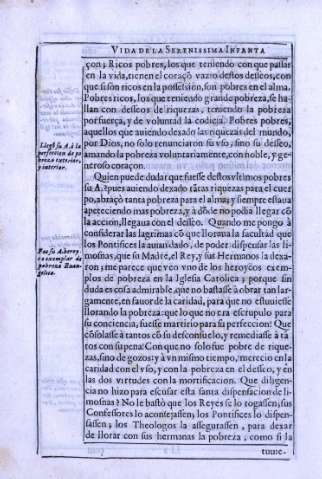 VIDA DE LA SERENISSIMA INFANTA
çon; Ricos pobres, los que teniendo con que passar
en la vida, tienen el coraçõ vazio destos desseos, con
que si son ricos en la possession, son pobres en el alma.
Pobres ricos, los que teniendo grande pobreza, se ha-
llan con desseos de riquezas, teniendo la pobreza
por fuerça, y de voluntad la codicia. Pobres pobres,
aquellos que auiendo dexado las riquezas del mundo,
por Dios, no solo renunciaron su vso, sino su desseo,
amando la pobreza voluntariamente, con noble, y ge-
neroso coraçon.
Llegò su A. à la
perfeccion de po
breza exterior,
y interior.
Quien puede dudar que fuesse destos vltimos pobres
su A.? pues auiendo dexado tãtas riquezas para el cuer
po, abraçò tanta pobreza para el alma; y siempre estaua
apeteciendo mas pobreza, y à dõde no podia llegar cõ
la accion, llegaua con el desseo. Quando me pongo à
considerar las lagrimas cõ que lloraua la facultad que
los Pontifices la auian dado, de poder dispensar las li-
mosnas, que su Madre, el Rey, y sus Hermanos la dexa-
ron; me parece que veo vno de los heroycos exem-
Fue su A. heroy
co exemplar de
pobreza Euan-
gelica.
plos de pobreza en la Iglesia Catolica; porque sin
duda es cosa admirable, que no bastasse à obrar tan lar-
gamente, en fauor de la caridad, para que no estuuiesse
llorando la pobreza: que lo que no era escrupulo para
su conciencia, fuesse martirio para su perfeccion! Que
cõsolasse à tantos cõ su desconsuelo, y remediasse à tã
tos con su pena! Con que no solo fue pobre de rique-
zas, sino de gozos: y à vn mismo tiempo, merecio en la
caridad con el vso, y con la pobreza en el desseo, y en
las dos virtudes con la mortificacion. Que diligen-
cia no hizo para escusar esta santa dispensacion de li-
mosnas? No le bastò que los Reyes se lo rogassen, sus
Confessores lo aconsejassen, los Pontifices lo dispen-
sassen; los Theologos la assegurassen, para dexar
de llorar con sus hermanas la pobreza, como si la
tuuie-